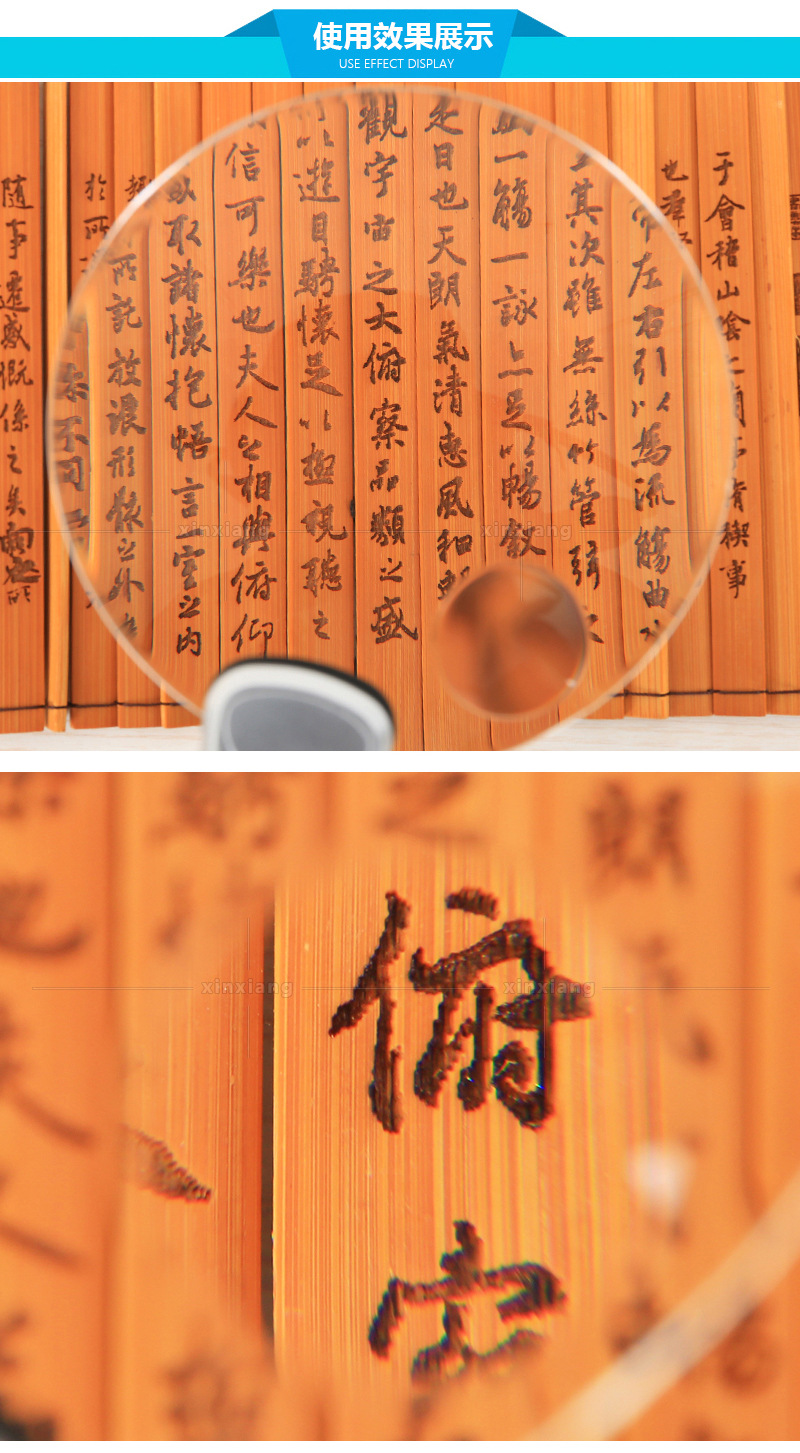 使用效果展示
USE EFFECT DISPLAY
于會稽山
也羣
左右引以為流觴曲
其次雖無絲竹管弦
一觴一詠亦足以暢敘
是日也天朗氣清惠風和
觀宇宙之大俯察品類之盛
以遊目騁懷足以極視聽之
信可樂也夫人之相與俯仰
取諸懷抱悟言一室之內
所託放浪形骸之外
不同
於所
隨事遷感慨係之矣
xinxiang
xinxiang
俯
xinxiang
xinxiang